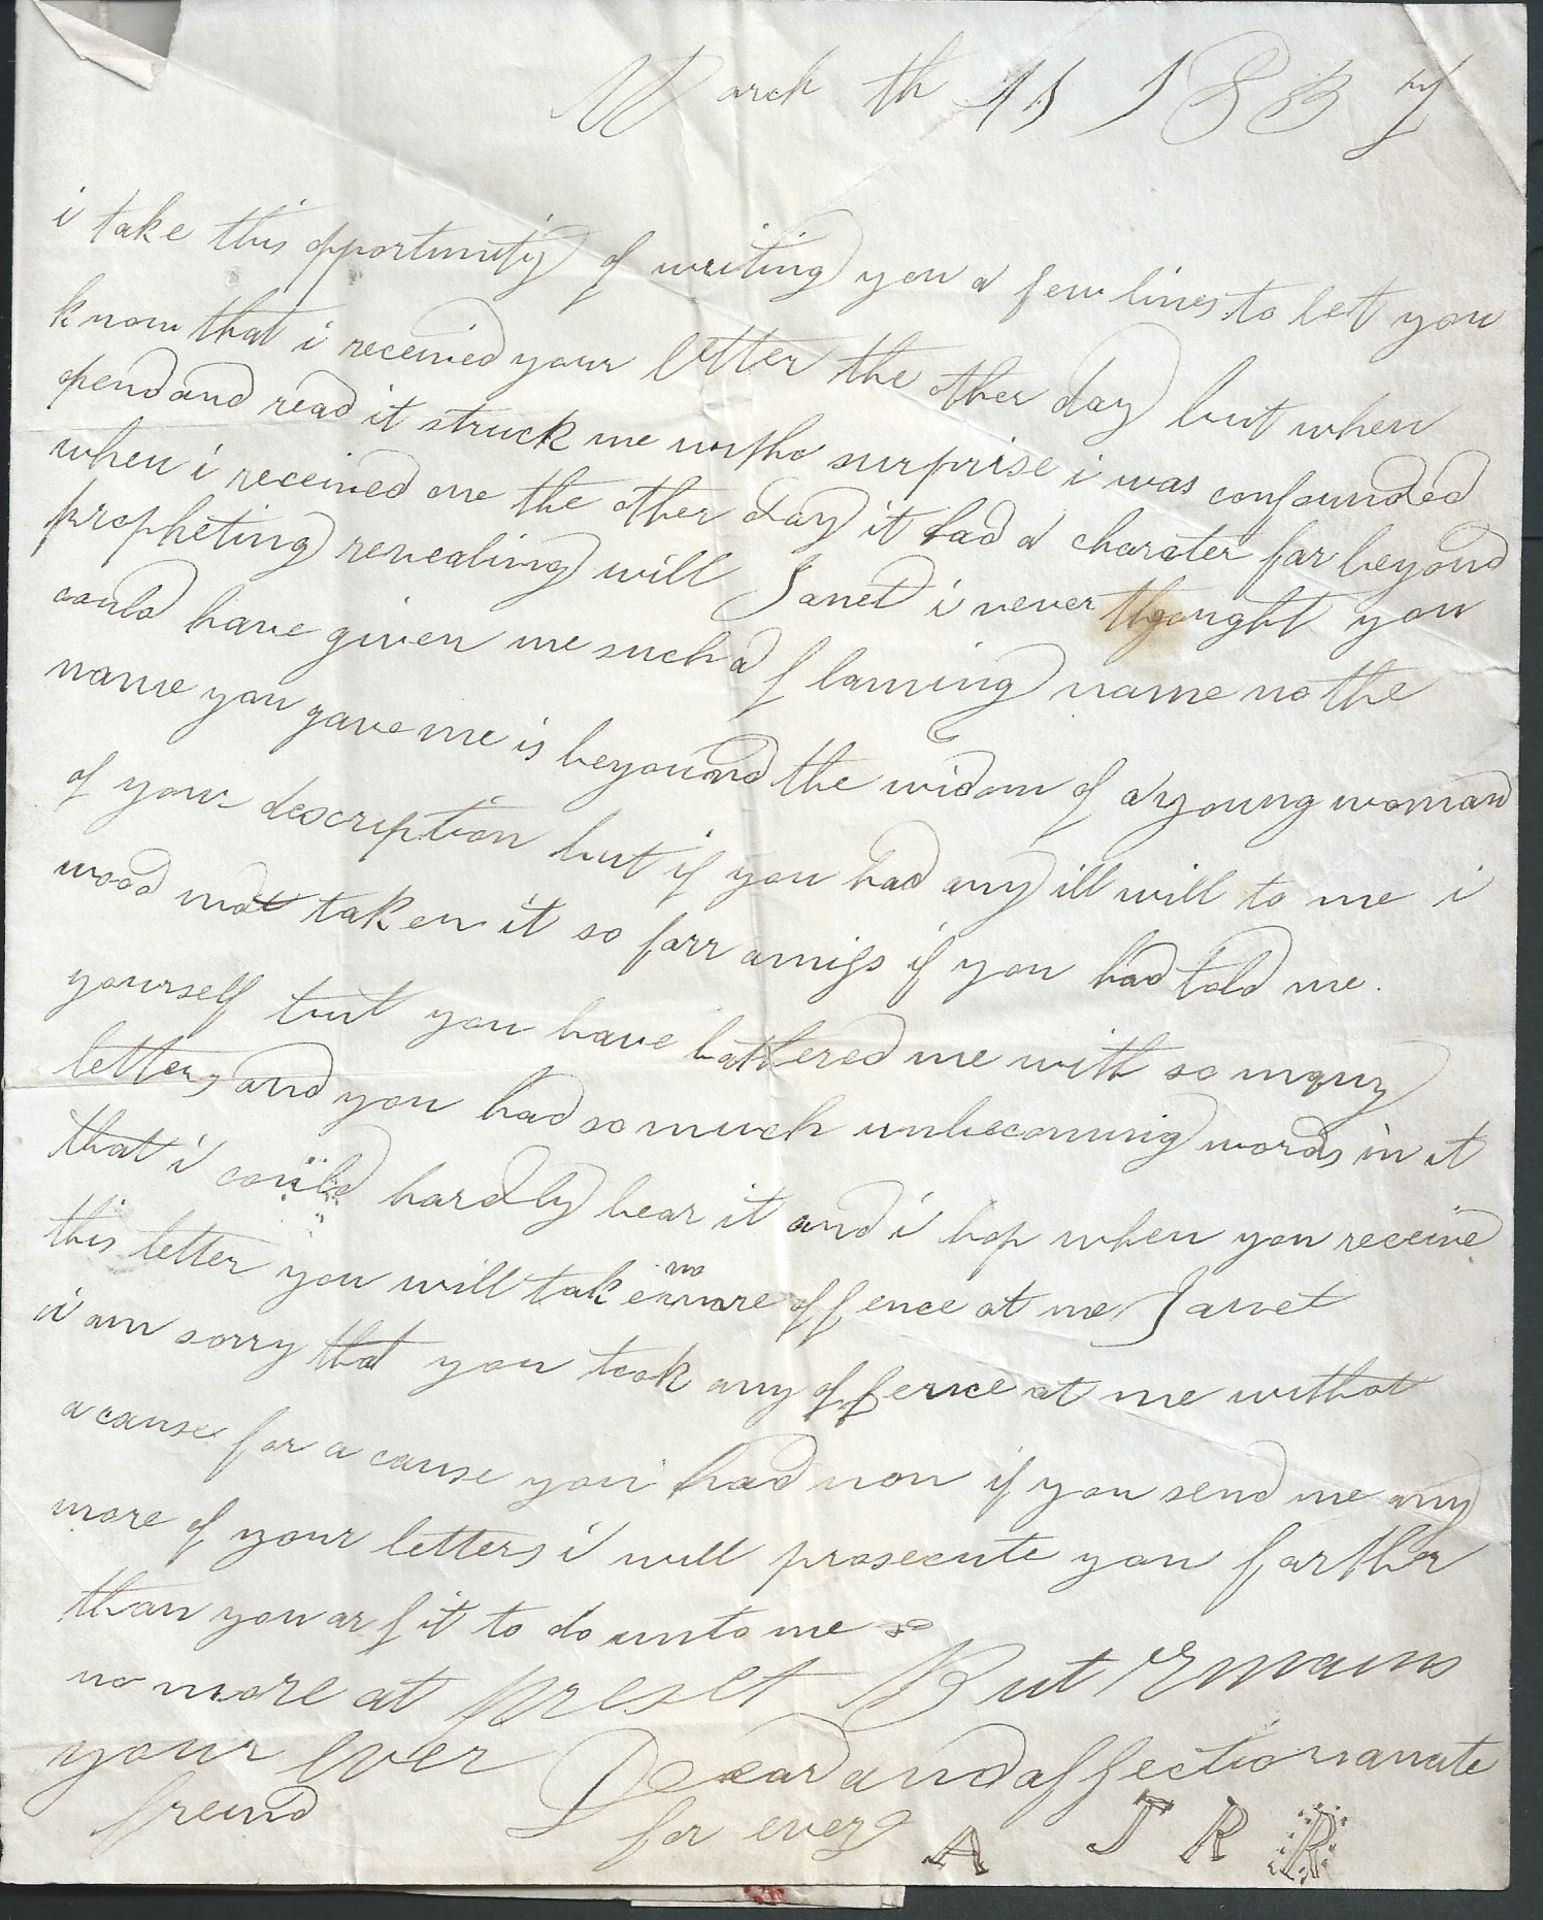 March th 11 1837
i take this opportunity of writing you a few lines to let you
know that i received your letter the other day but when
opend and read it struck me witha surprise i was confounded
when i received one the other day it had a charater far beyond
propheting revealing will Janet i never thought you
could have given me such a flaming name no the
name you gave me is beyound the widom of a young woman
of your description but if you had any ill will to me i
wood not taken it so farr amiss if you had told me.
yourself but you have bothered me with so many
letters and you had so much unbecoming words in it
that i could hardly bear it and i hop when you receive
this letter you will take no more offence at me Janet
i am sorry that you took any offence at me withot
a cause for a cause you had non if you send me any
more of your letters i will prosecute you farther
than you ar fit to do unto me so
no more at preset But remains
your ever Dear and affectionanate
freind for ever A J R R